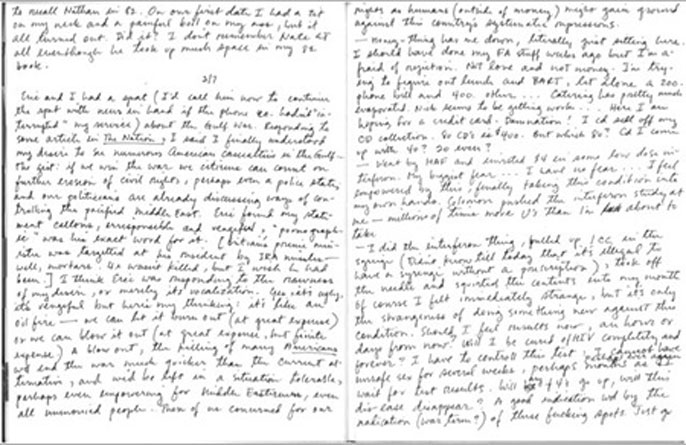 to recall Nathan in 82. On our first date I had a zit
on my neck and a painful boil on my ass, but it
all turned out. Did it? I don't remember Nate at
all eventhough he took up much space in my 82
book.
2/7
Eric and I had a spat (I'd call him now to continue
the spat with news in hand if the phone co. hadn't "in-
terrupted" my service) about the Gulf War. Responding to
some article in The Nation, I said I finally understood
my desire to see numerous American casualties in the Gulf—
the gist: if we win the war we citizens can count on
further erosion of civil rights, perhaps even a police state,
and our politicians are already discussing ways of con-
trolling the pacified Middle East. Eric found my state-
ment callous, irresponsible and vengeful, "pornograph-
ic" was his exact word for it. [Britains prime mini-
ster was targeted at his resident by IRA
well, mortars. He wasn't killed, but I wish he had
been.] I think Eric was responding to the rawness
of my desire, or merely its vocalization. Yes, it's ugly,
it's vengeful but here's my thinking: it's like an
oil fire — we can let it burn out (at great expense)
or we can blow it out (at great expense, but finite
expense) a blow out, the killing of many Americans
wd end the war much quicker than the current al-
ternative, and we'd be left in a situation tolerable,
perhaps even empowering for Middle Easterners, even
all unmonied people. Those of us concerned for our
rights as humans (outside of money) might gain ground
against this country's systematic oppressors.
— Money-thing has me down, literally just sitting here.
I should have done my FA stuff weeks ago but I'm a-
fraid of rejection. Not love and not money. I'm try-
ing to figure out lunch and BART, let alone a 200-
phone bill and 400. other... Catering has pretty much
evaporated. Nick seems to be getting work... Here I am
hoping for a credit card. Damnation! I'd sell off my
CD collection. 80 CDs is $400. But which 80? Cd I come
up with 40? 20 even?
— Went by HAF and some low dose in-
terferon. My biggest fear... I have no fear... I feel
empowered by this, finally taking this condition into
my own hands. Solomon pushed the interferon study at
me — millions of times more U's than I'm about to
take
— I did the interferon thing, pulled up .1 CC in the
syringe (Didn't know till today that it's illegal to
have a syringe without a prescription), took off
the needle and squirted the contents into my mouth.
Of course I felt immediately strange, but it's only
the strangeness of doing something new against this
condition. Should I feel results now, an hour or
days from now? Will I be cured of HIV completely and
forever? I have to controll this test: I cannot have
unsafe sex for several weeks, perhaps months as I
wait for test results. Will T4s go up, will this
disease disappear? A good indication wd be the
radication (war term?) of these fucking spots. Just go